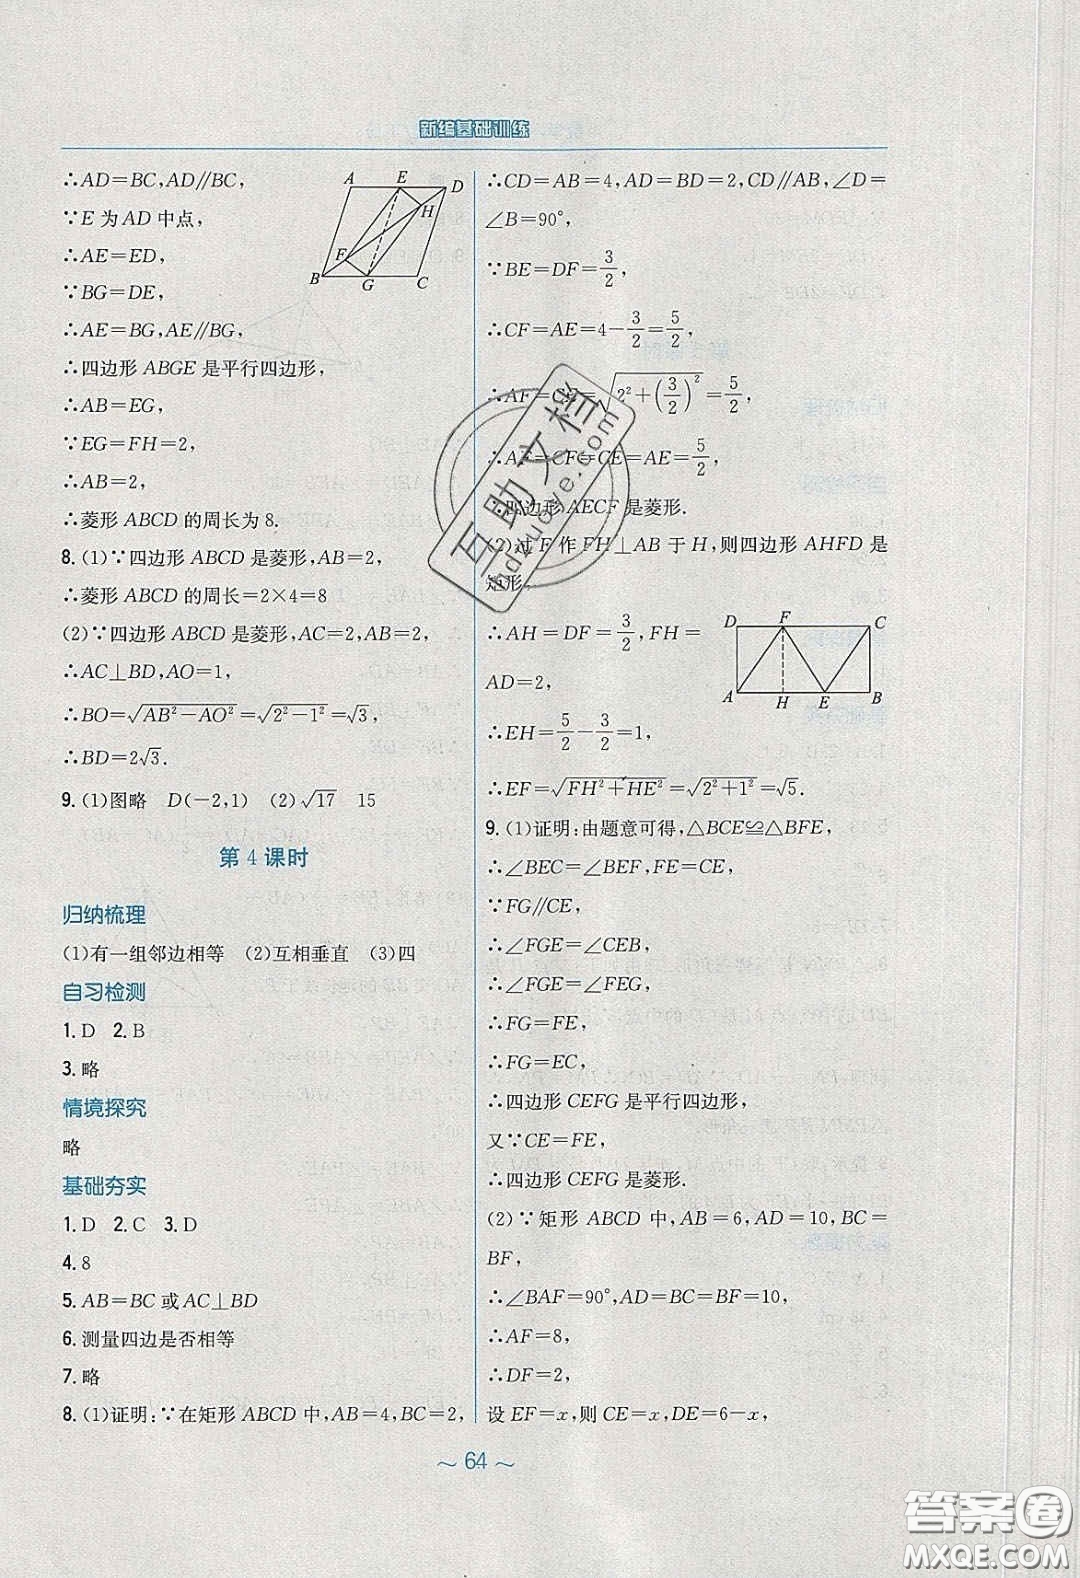 新编基础训练
∴AD=BC,AD∥BC,
∵E 为 AD 中点,
∴AE=ED,
∵BG=DE,
∴AE=BG,AE∥BG,
∴四边形 ABGE 是平行四边形,
∴AB=EG,
∵EG=FH=2,
∴AB=2,
∴菱形 ABCD 的周长为 8.
A E D
H
F
B G C
8.(1)∵四边形 ABCD 是菱形,AB=2,
∴菱形 ABCD 的周长=2×4=8
(2)∵四边形 ABCD 是菱形,AC=2,AB=2,
∴AC⊥BD,AO=1,
∴BO=√(AB²−AO²)=√(2²−1²)=√3,
∴BD=2√3.
9.(1)图略 D(−2,1) (2)√17 15
第 4 课时
归纳梳理
(1)有一组邻边相等 (2)互相垂直 (3)四
自习检测
1.D 2.B
3.略
情境探究
略
基础夯实
1.D 2.C 3.D
4.8
5.AB=BC 或 AC⊥BD
6.测量四边是否相等
7.略
8.(1)证明:∵在矩形 ABCD 中,AB=4,BC=2,
∴CD=AB=4,AD=BD=2,CD∥AB,∠D=
∠B=90°,
∵BE=DF=3/2,
∴CF=AE=4−3/2=5/2,
∴AF=CE=√(2²+(3/2)²)=5/2,
∴AF=CF=CE=AE=5/2,
∴四边形 AECF 是菱形.
(2)过 F 作 FH⊥AB 于 H,则四边形 AHFD 是
矩形,
∴AH=DF=3/2,FH=
AD=2,
D F C
A H E B
∴EH=5/2−3/2=1,
∴EF=√(FH²+HE²)=√(2²+1²)=√5.
9.(1)证明:由题意可得,△BCE≌△BFE,
∴∠BEC=∠BEF,FE=CE,
∵FG∥CE,
∴∠FGE=∠CEB,
∴∠FGE=∠FEG,
∴FG=FE,
∴FG=EC,
∴四边形 CEFG 是平行四边形,
又∵CE=FE,
∴四边形 CEFG 是菱形.
(2)∵矩形 ABCD 中,AB=6,AD=10,BC=
BF,
∴∠BAF=90°,AD=BC=BF=10,
∴AF=8,
∴DF=2,
设 EF=x,则 CE=x,DE=6−x,
～ 64 ～
互助文档
hdzuoye.com
答案圈
MXQE.COM